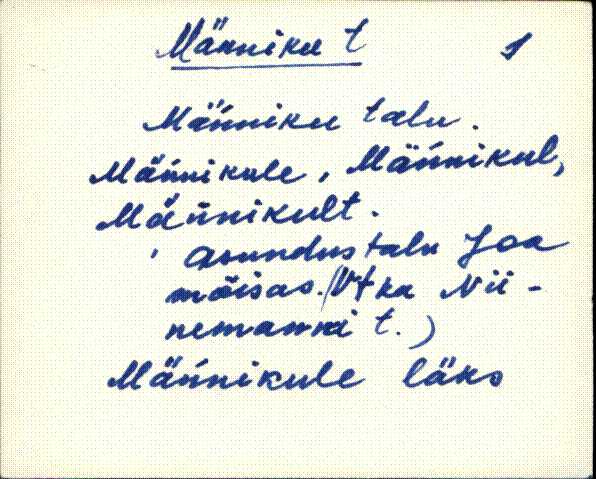 Männiku t 1
Mäńniku talu.
Mäńnikule, Mäńnikul,
Mäńnikult.
' asundustalu Joa
mõisas. (Vt ka Nii-
nemanni t.)
Mäńnikule läks